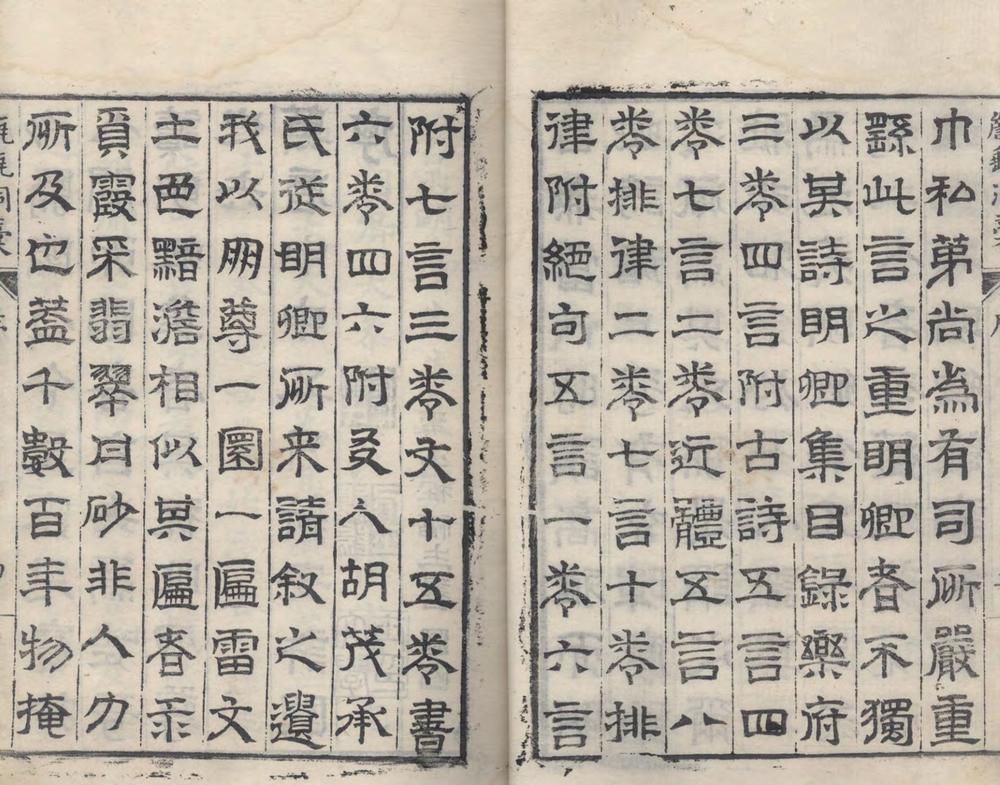 巾私第尚為有司所嚴重
繇此言之重明卿者不獨
以其詩明卿集目錄樂府
三卷四言附古詩五言四
卷七言二卷近體五言八
卷排律二卷七言十卷排
律附絕句五言一卷六言
附七言三卷文十五卷書
六卷四六附友人胡茂承
氏從明卿所来請叙之遺
我以朋尊一圜一匾雷文
土色黯澹相似其匾者
員霞采翡翠丹砂非人力
所及也葢千數百年物掩